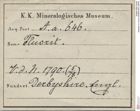 K. K. Mineralogisches Museum.
A.a. 646.
Fluorit.
V.d.N. 1790.
Fundort: Derbyshire, Engl.